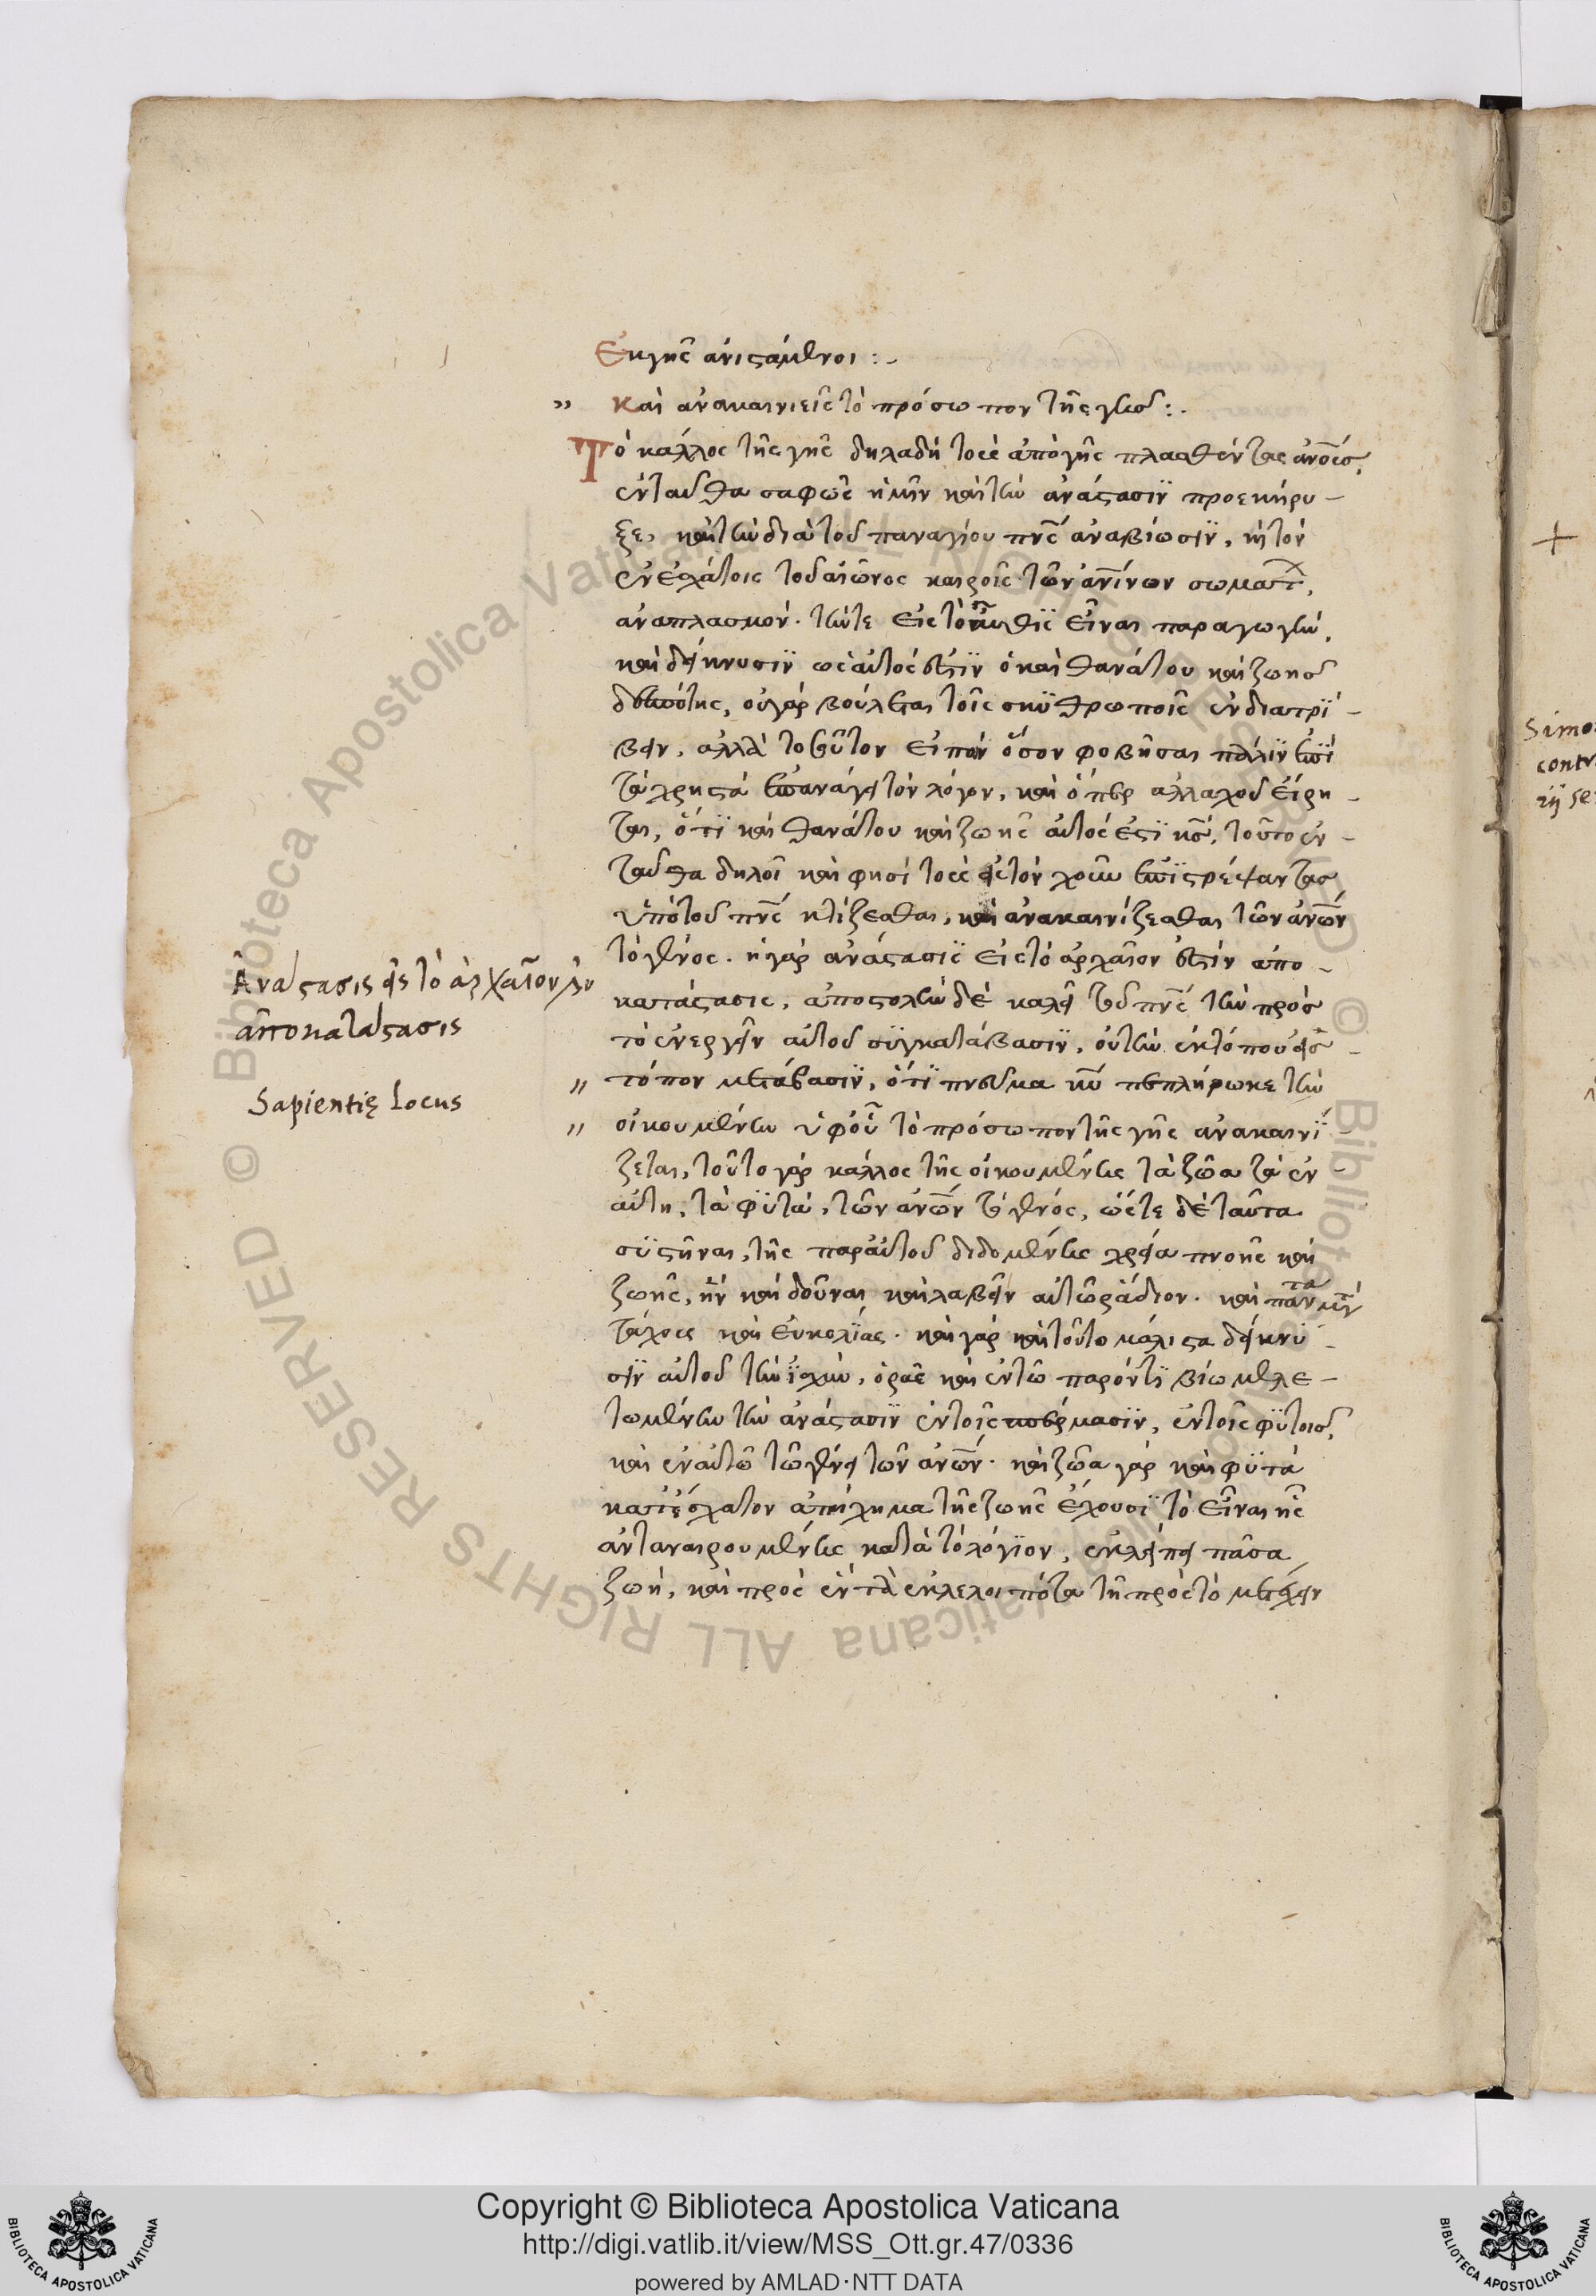 Ἐκ γῆς ἀνιστάμενοι :-
" Καὶ ἀνακαινιεῖς τὸ πρόσωπον τῆς γῆς :.
Τὸ κάλλος τῆς γῆς δηλαδὴ τοὺς ἀπὸ γῆς πλασθέντας ἀνους,
ἐνταῦθα σαφῶς ἡμῖν καὶ τὴν ἀνάστασιν προεκήρυ-
ξε, καὶ τὴν διὰ τοῦ παναγίου πνς ἀναβίωσιν, ἢ τὸν
ἐν ἐσχάτοις τοῦ αἰῶνος καιροῖς τῶν ἀνίνων σωμάτ,
ἀναπλασμόν. τήν τε εἰς τὸ αὖθις εἶναι παραγωγήν,
καὶ δείκνυσιν ὡς αὐτός ἐστιν ὁ καὶ θανάτου καὶ ζωῆς
δεσπότης, οὐ γὰρ βούλεται τοῖς σκυθρωποῖς ἐνδιατρί-
βειν, ἀλλὰ τοσοῦτον εἰπὼν ὅσον φοβῆσαι πάλιν ἐπὶ
τὰ χρηστὰ ἐπανάγει τὸν λόγον, καὶ ὅπερ ἀλλαχοῦ εἴρη-
ται, ὅτι καὶ θανάτου καὶ ζωῆς αὐτός ἐστι κς, τοῦτο ἐν-
ταῦθα δηλοῖ καὶ φησὶ τοὺς εἰς τὸν χοῦν ἐπιστρέψαντας
ὑπὸ τοῦ πνς κτίζεσθαι, καὶ ἀνακαινίζεσθαι τῶν ἀνων
τὸ γένος. ἡ γὰρ ἀνάστασις εἰς τὸ ἀρχαῖόν ἐστιν ἀπο-
κατάστασις, ἀποστολὴν δὲ καλεῖ τοῦ πνς τὴν πρὸς
τὸ ἐνεργεῖν αὐτοῦ συγκατάβασιν, οὐ τὴν ἐκ τόπου εἰς
" τόπον μετάβασιν, ὅτι πνεῦμα κυ πεπλήρωκε τὴν
" οἰκουμένην ὑφ' οὗ τὸ πρόσωπον τῆς γῆς ἀνακαινί-
ζεται, τοῦτο γὰρ κάλλος τῆς οἰκουμένης τὰ ζῶα τὰ ἐν
αὐτῆ, τὰ φυτὰ, τῶν ἀνων τὸ γένος, ὥστε δὲ ταῦτα
συστῆναι, τῆς παρ' αὐτοῦ διδομένης χρεία πνοῆς καὶ
ζωῆς, ἣν καὶ δοῦναι καὶ λαβεῖν αὐτῶ ῥάδιον. καὶ παντα μετὰ
τάχους καὶ εὐκολίας. καὶ γὰρ καὶ τοῦτο μάλιστα δείκνυ-
σιν αὐτοῦ τὴν ἰσχὺν, ὁρᾶς καὶ ἐν τῶ παρόντι βίω μελε-
τωμένην τὴν ἀνάστασιν ἐν τοῖς σπέρμασιν, ἐν τοῖς φυτοῖς,
καὶ ἐν αὐτῶ τῶ γένει τῶν ἀνων. καὶ ζῶα γὰρ καὶ φυτὰ
κατ' ἔσχατον ἀπήχημα τῆς ζωῆς ἔχουσι τὸ εἶναι ἧς
ἀνταναιρουμένης κατὰ τὸ λόγιον, ἐκλείπει πᾶσα
ζωὴ, καὶ πρὸς ἣν τὰ ἐκλελοιπότα τῆ πρὸς τὸ μετέχειν
Ἀνάστασις εἰς τὸ ἀρχαῖον
ἀποκατάστασις
Sapientię locus
Simo
contr
Copyright © Biblioteca Apostolica Vaticana
http://digi.vatlib.it/view/MSS_Ott.gr.47/0336
powered by AMLAD·NTT DATA
BIBLIOTECA APOSTOLICA VATICANA
BIBLIOTECA APOSTOLICA VATICANA
© Biblioteca Apostolica Vaticana ALL RIGHTS RESERVED
© Biblioteca Apostolica Vaticana ALL RIGHTS RESERVED